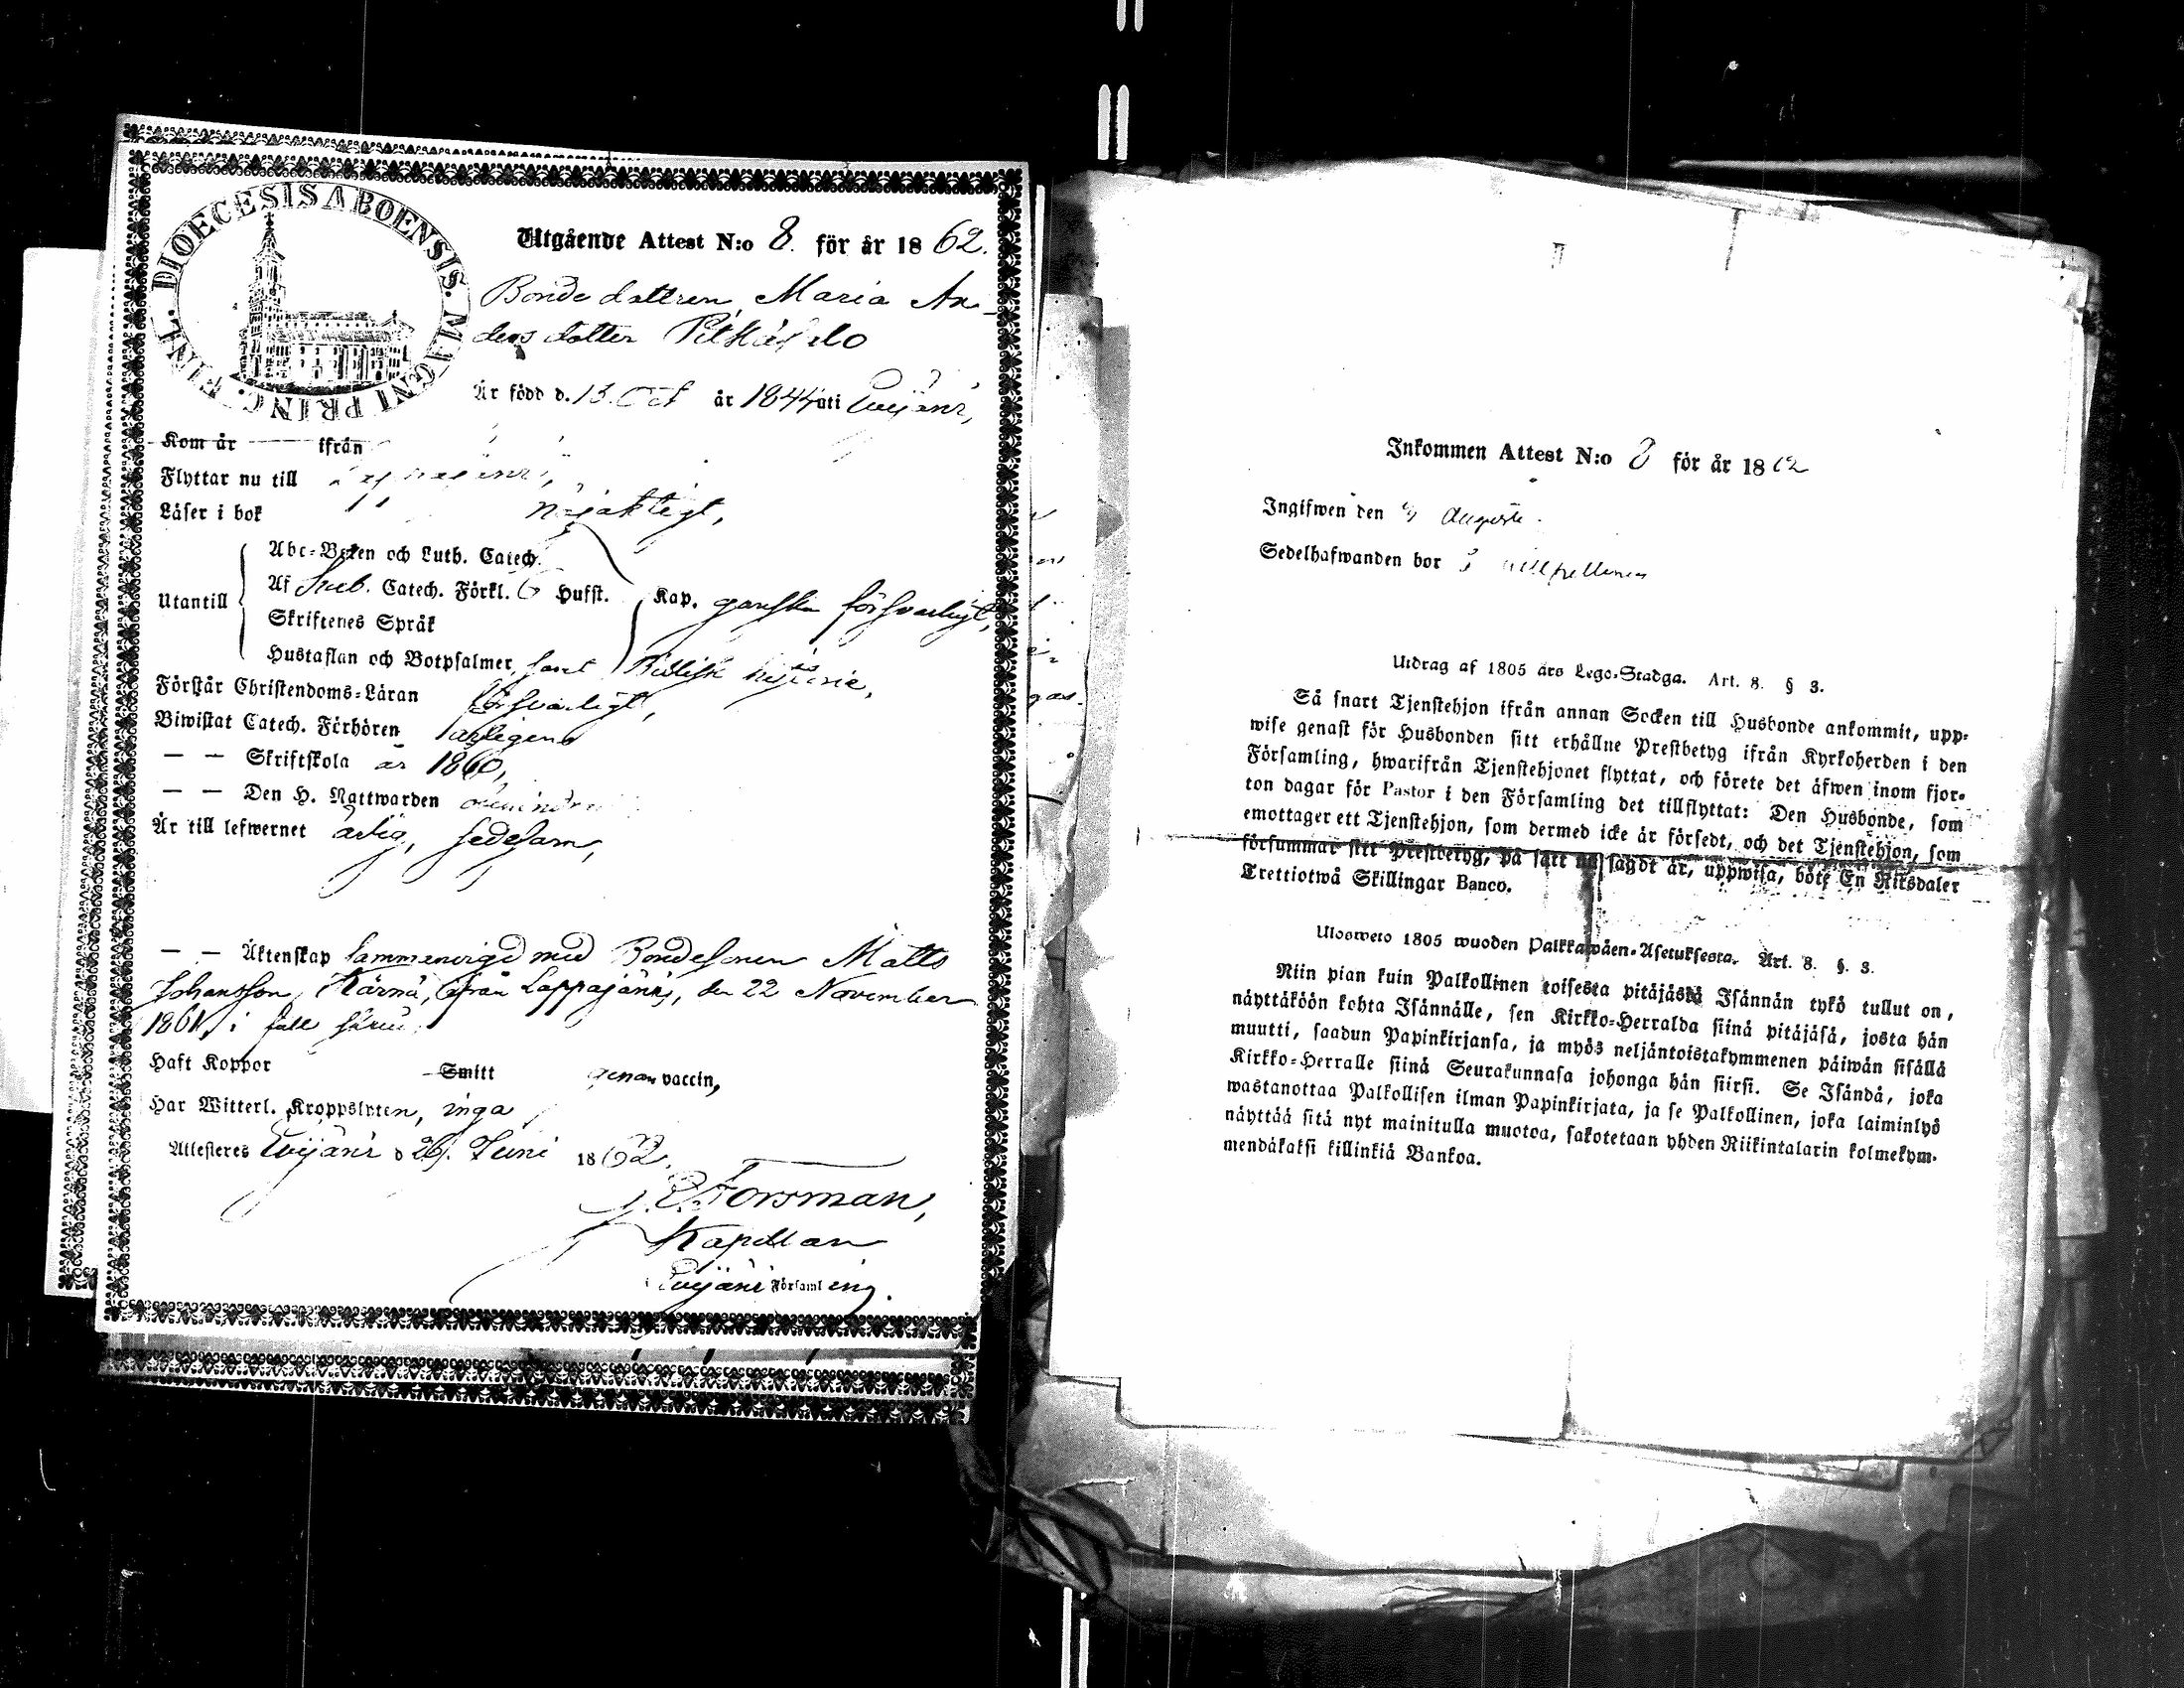 DIOECESIS ABOENSIS. MAGNI PRINC. FINL.
Utgående Attest N:o 8. för år 1862.
Bondedottren Maria An-
ders dotter Pitkäsalo
Är född d. 13. Oct år 1844 uti Evijärvi,
Kom år ifrån
Flyttar nu till Lappajärvi,
Läser i bok nöjaktigt,
Utantill
Abc-Boken och Luth. Catech.
Af Sveb. Catech. Förkl. 6 Hufst. Kap. ganska försvarligt,
Skriftenes Språk
Hustaflan och Botpsalmer, samt Biblisk historie,
Förstår Christendoms-Läran försvarligt,
Biwistat Catech. Förhören årligen
— — Skriftskola år 1860,
— — Den H. Nattwarden
Är till lefwernet ärlig, sedesam,
— — Äktenskap sammanvigd med Bondesonen Matts
Johansson Kärnä, ifrån Lappajärvi, den 22 November
1861,
Haft Koppor Smitt genom vaccin,
Har Witterl. Kroppslyten, inga
Attesteres Evijärvi d 26. Juni 1862.
J. E. Forsman,
Kapellan
Evijärvi Församling.
Inkommen Attest N:o 8 för år 1862
Ingifwen den Augusti.
Sedelhafwanden bor
Utdrag af 1805 års Lego-Stadga. Art. 8. § 3.
Så snart Tjenstehjon ifrån annan Socken till Husbonde ankommit, upp-
wise genast för Husbonden sitt erhållne Prestbetyg ifrån Kyrkoherden i den
Församling, hwarifrån Tjenstehjonet flyttat, och förete det äfwen inom fjor-
ton dagar för Pastor i den Församling det tillflyttat: Den Husbonde, som
emottager ett Tjenstehjon, som dermed icke är försedt, och det Tjenstehjon, som
försummar sitt Prestbetyg, på sätt nu sagdt är, uppwisa, böte En Riksdaler
Trettiotwå Skillingar Banco.
Ulosweto 1805 wuoden Palkkawäen-Asetuksesta. Art. 8. §. 3.
Niin pian kuin Palkollinen toisesta pitäjästä Isännän tykö tullut on,
näyttäköön kohta Isännälle, sen Kirkko-Herralda siinä pitäjäsä, josta hän
muutti, saadun Papinkirjansa, ja myös neljäntoistakymmenen päiwän sisällä
Kirkko-Herralle siinä Seurakunnasa johonga hän siirsi. Se Isändä, joka
wastanottaa Palkollisen ilman Papinkirjata, ja se Palkollinen, joka laiminlyö
näyttää sitä nyt mainitulla muotoa, sakotetaan yhden Riikintalarin kolmekym-
mendäkaksi killinkiä Bankoa.